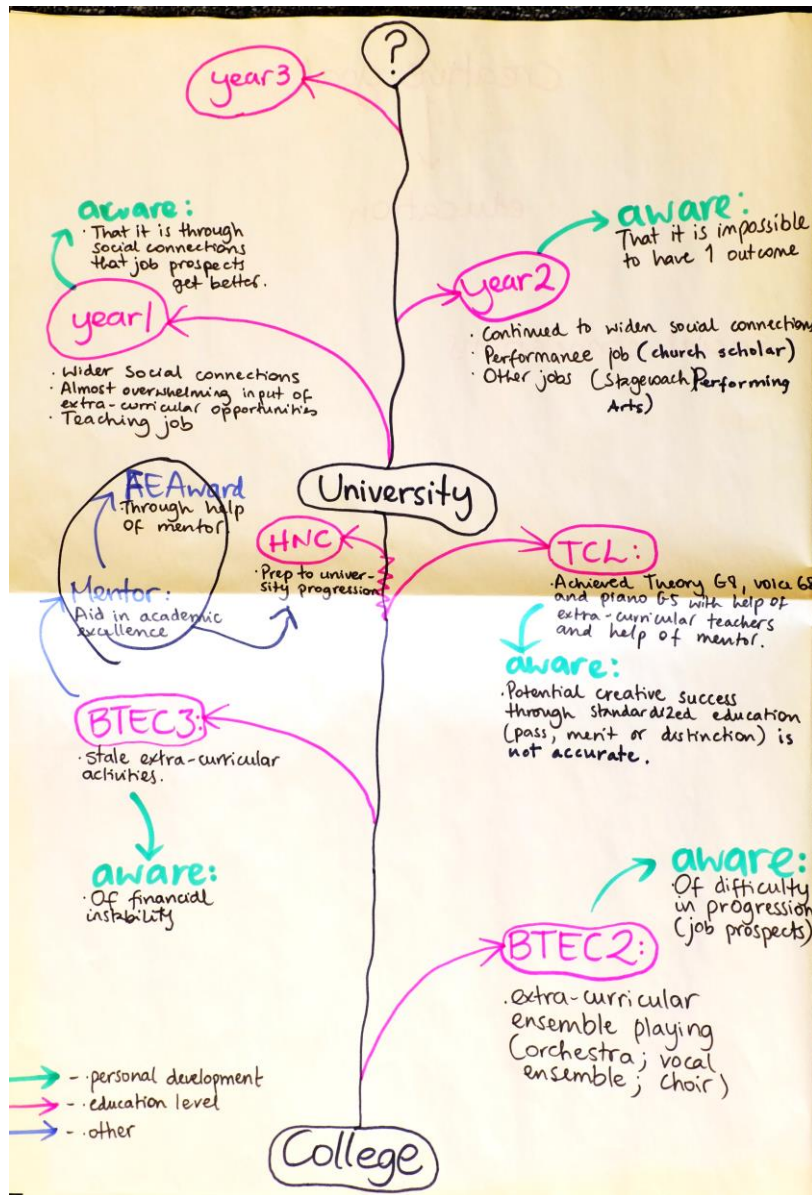 ?
year3
aware:
· That it is through
social connections
that job prospects
get better.
year1
· Wider social connections
· Almost overwhelming input of
extra-curricular opportunities
· Teaching job
aware:
That it is impossible
to have 1 outcome
year2
· Continued to widen social connections
· Performance job (church scholar)
· Other jobs (Stagecoach Performing
Arts)
University
AEAward
·Through help
of mentor.
Mentor:
Aid in academic
excellence
HNC
·Prep to univer-
sity progression
TCL:
·Achieved Theory G8, voice G8
and piano G5 with help of
extra-curricular teachers
and help of mentor.
aware:
·Potential creative success
through standardized education
(pass, merit or distinction) is
not accurate.
BTEC3:
·stale extra-curricular
activities.
aware:
·Of financial
instability
aware:
·Of difficulty
in progression
(job prospects)
BTEC2:
·extra-curricular
ensemble playing
(orchestra; vocal
ensemble; choir)
- ·personal development
- ·education level
- ·other
College